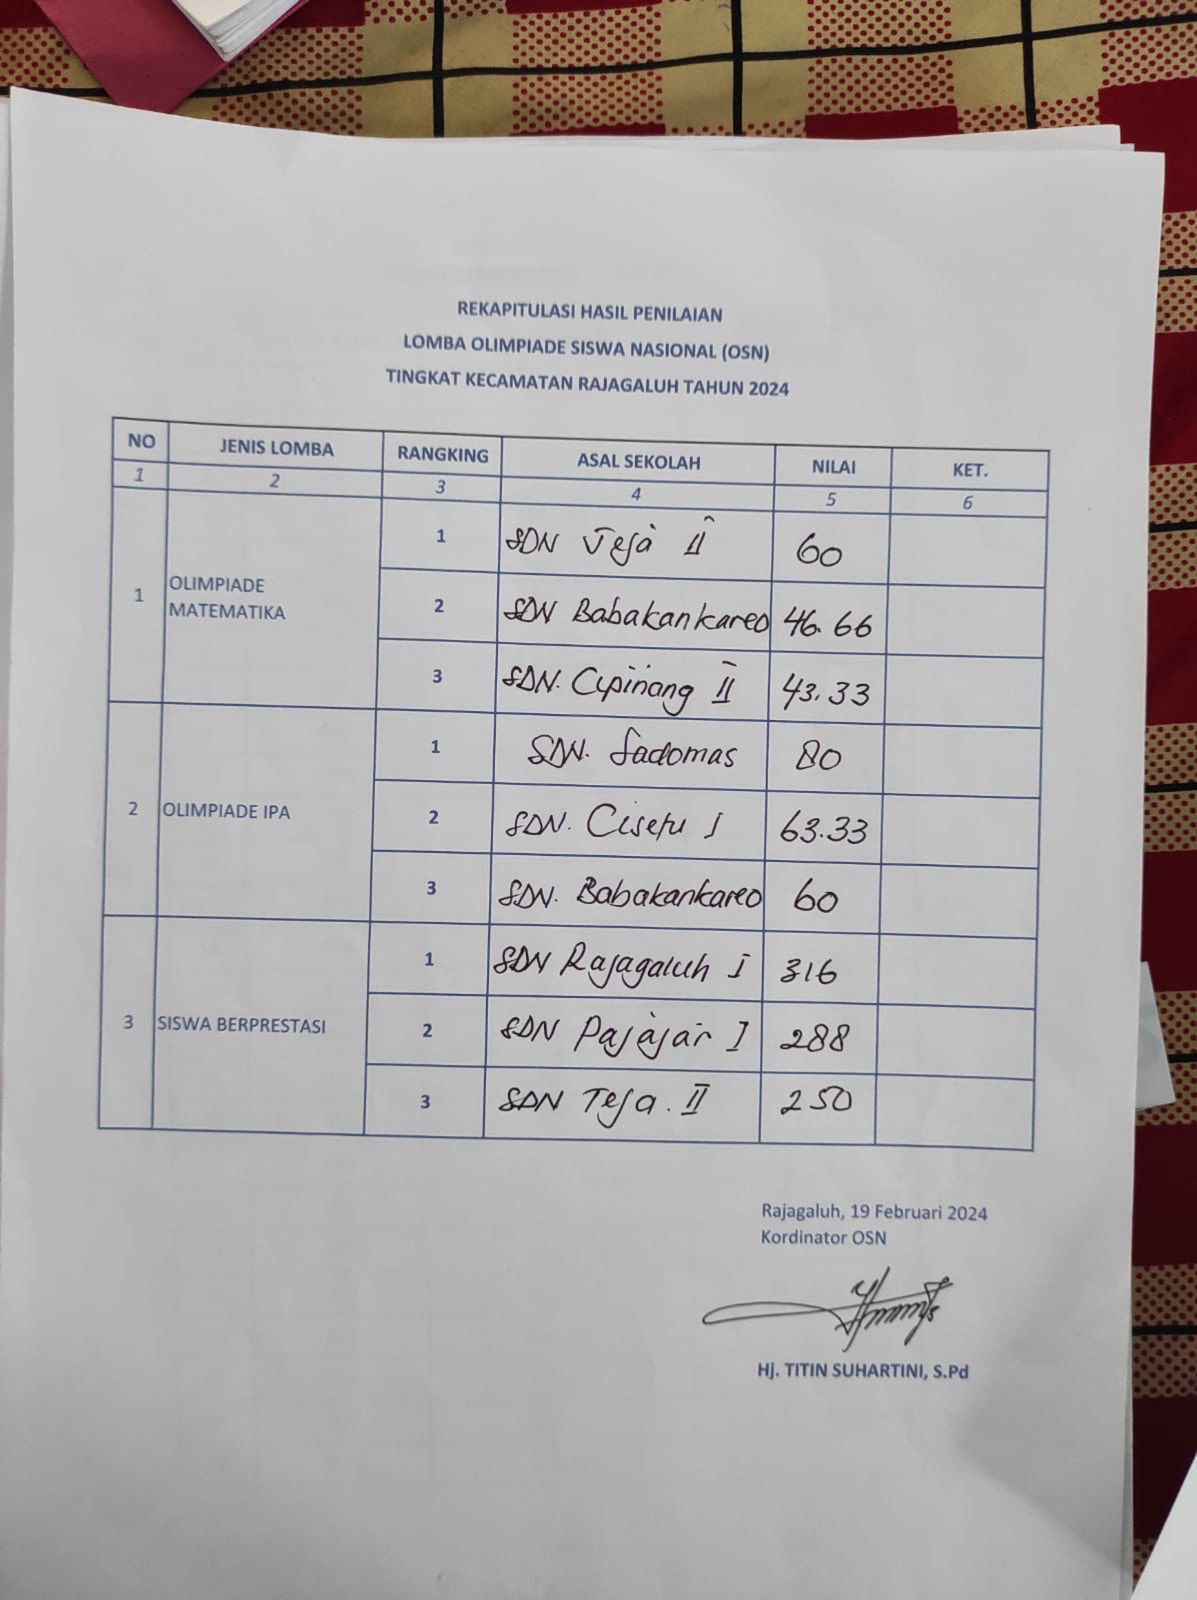 REKAPITULASI HASIL PENILAIAN
LOMBA OLIMPIADE SISWA NASIONAL (OSN)
TINGKAT KECAMATAN RAJAGALUH TAHUN 2024
NO JENIS LOMBA RANGKING ASAL SEKOLAH NILAI KET.
1 2 3 4 5 6
1 OLIMPIADE MATEMATIKA 1 SDN Teja II 60
2 SDN Babakankareo 46.66
3 SDN. Cipinang II 43.33
2 OLIMPIADE IPA 1 SDN. Sadomas 80
2 SDN. Cisetu I 63.33
3 SDN. Babakankareo 60
3 SISWA BERPRESTASI 1 SDN Rajagaluh I 316
2 SDN Pajajar I 288
3 SDN Teja. II 250
Rajagaluh, 19 Februari 2024
Kordinator OSN
Hj. TITIN SUHARTINI, S.Pd